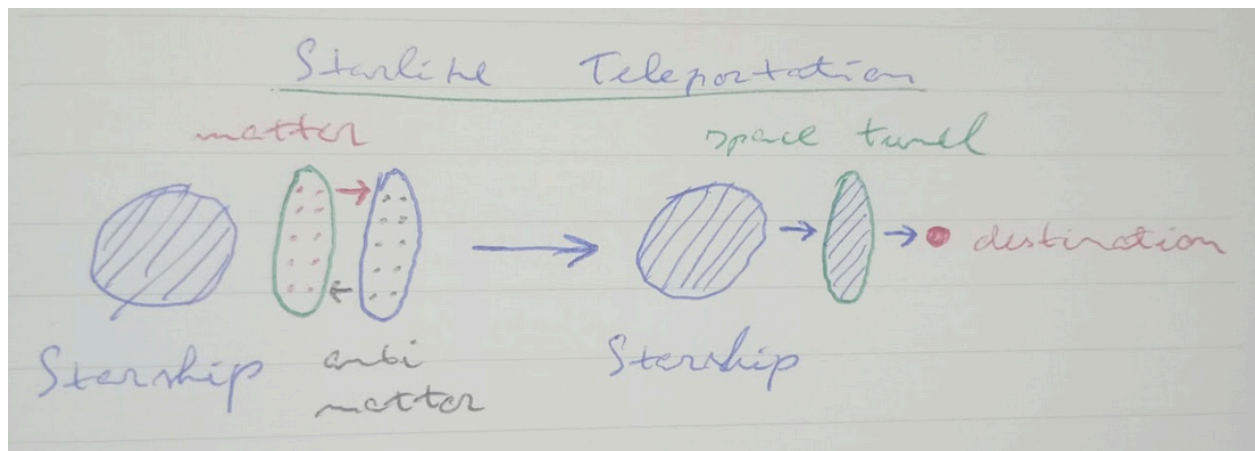 Starlite Teleportation
matter
space tunnel
destination
Starship
anti
matter
Starship